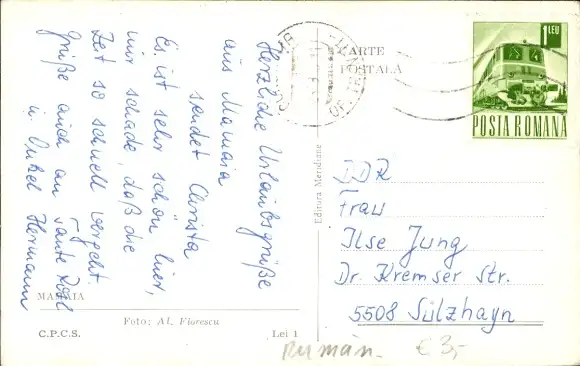 Herzliche Urlaubsgrüße
aus Mamaia
sendet Christa
Es ist sehr schön hier,
nur schade, daß die
Zeit so schnell vergeht.
Grüße auch an Tante
u. Onkel Hermann
MAMAIA
Foto: Al. Florescu
C.P.C.S.
Lei 1
Editura Meridiane
CARTE
POSTALĂ
1 LEU
POSTA ROMANA
DDR
Frau
Ilse Jung
Dr. Kremser Str.
5508 Sülzhayn
Rumän.
€ 3,-